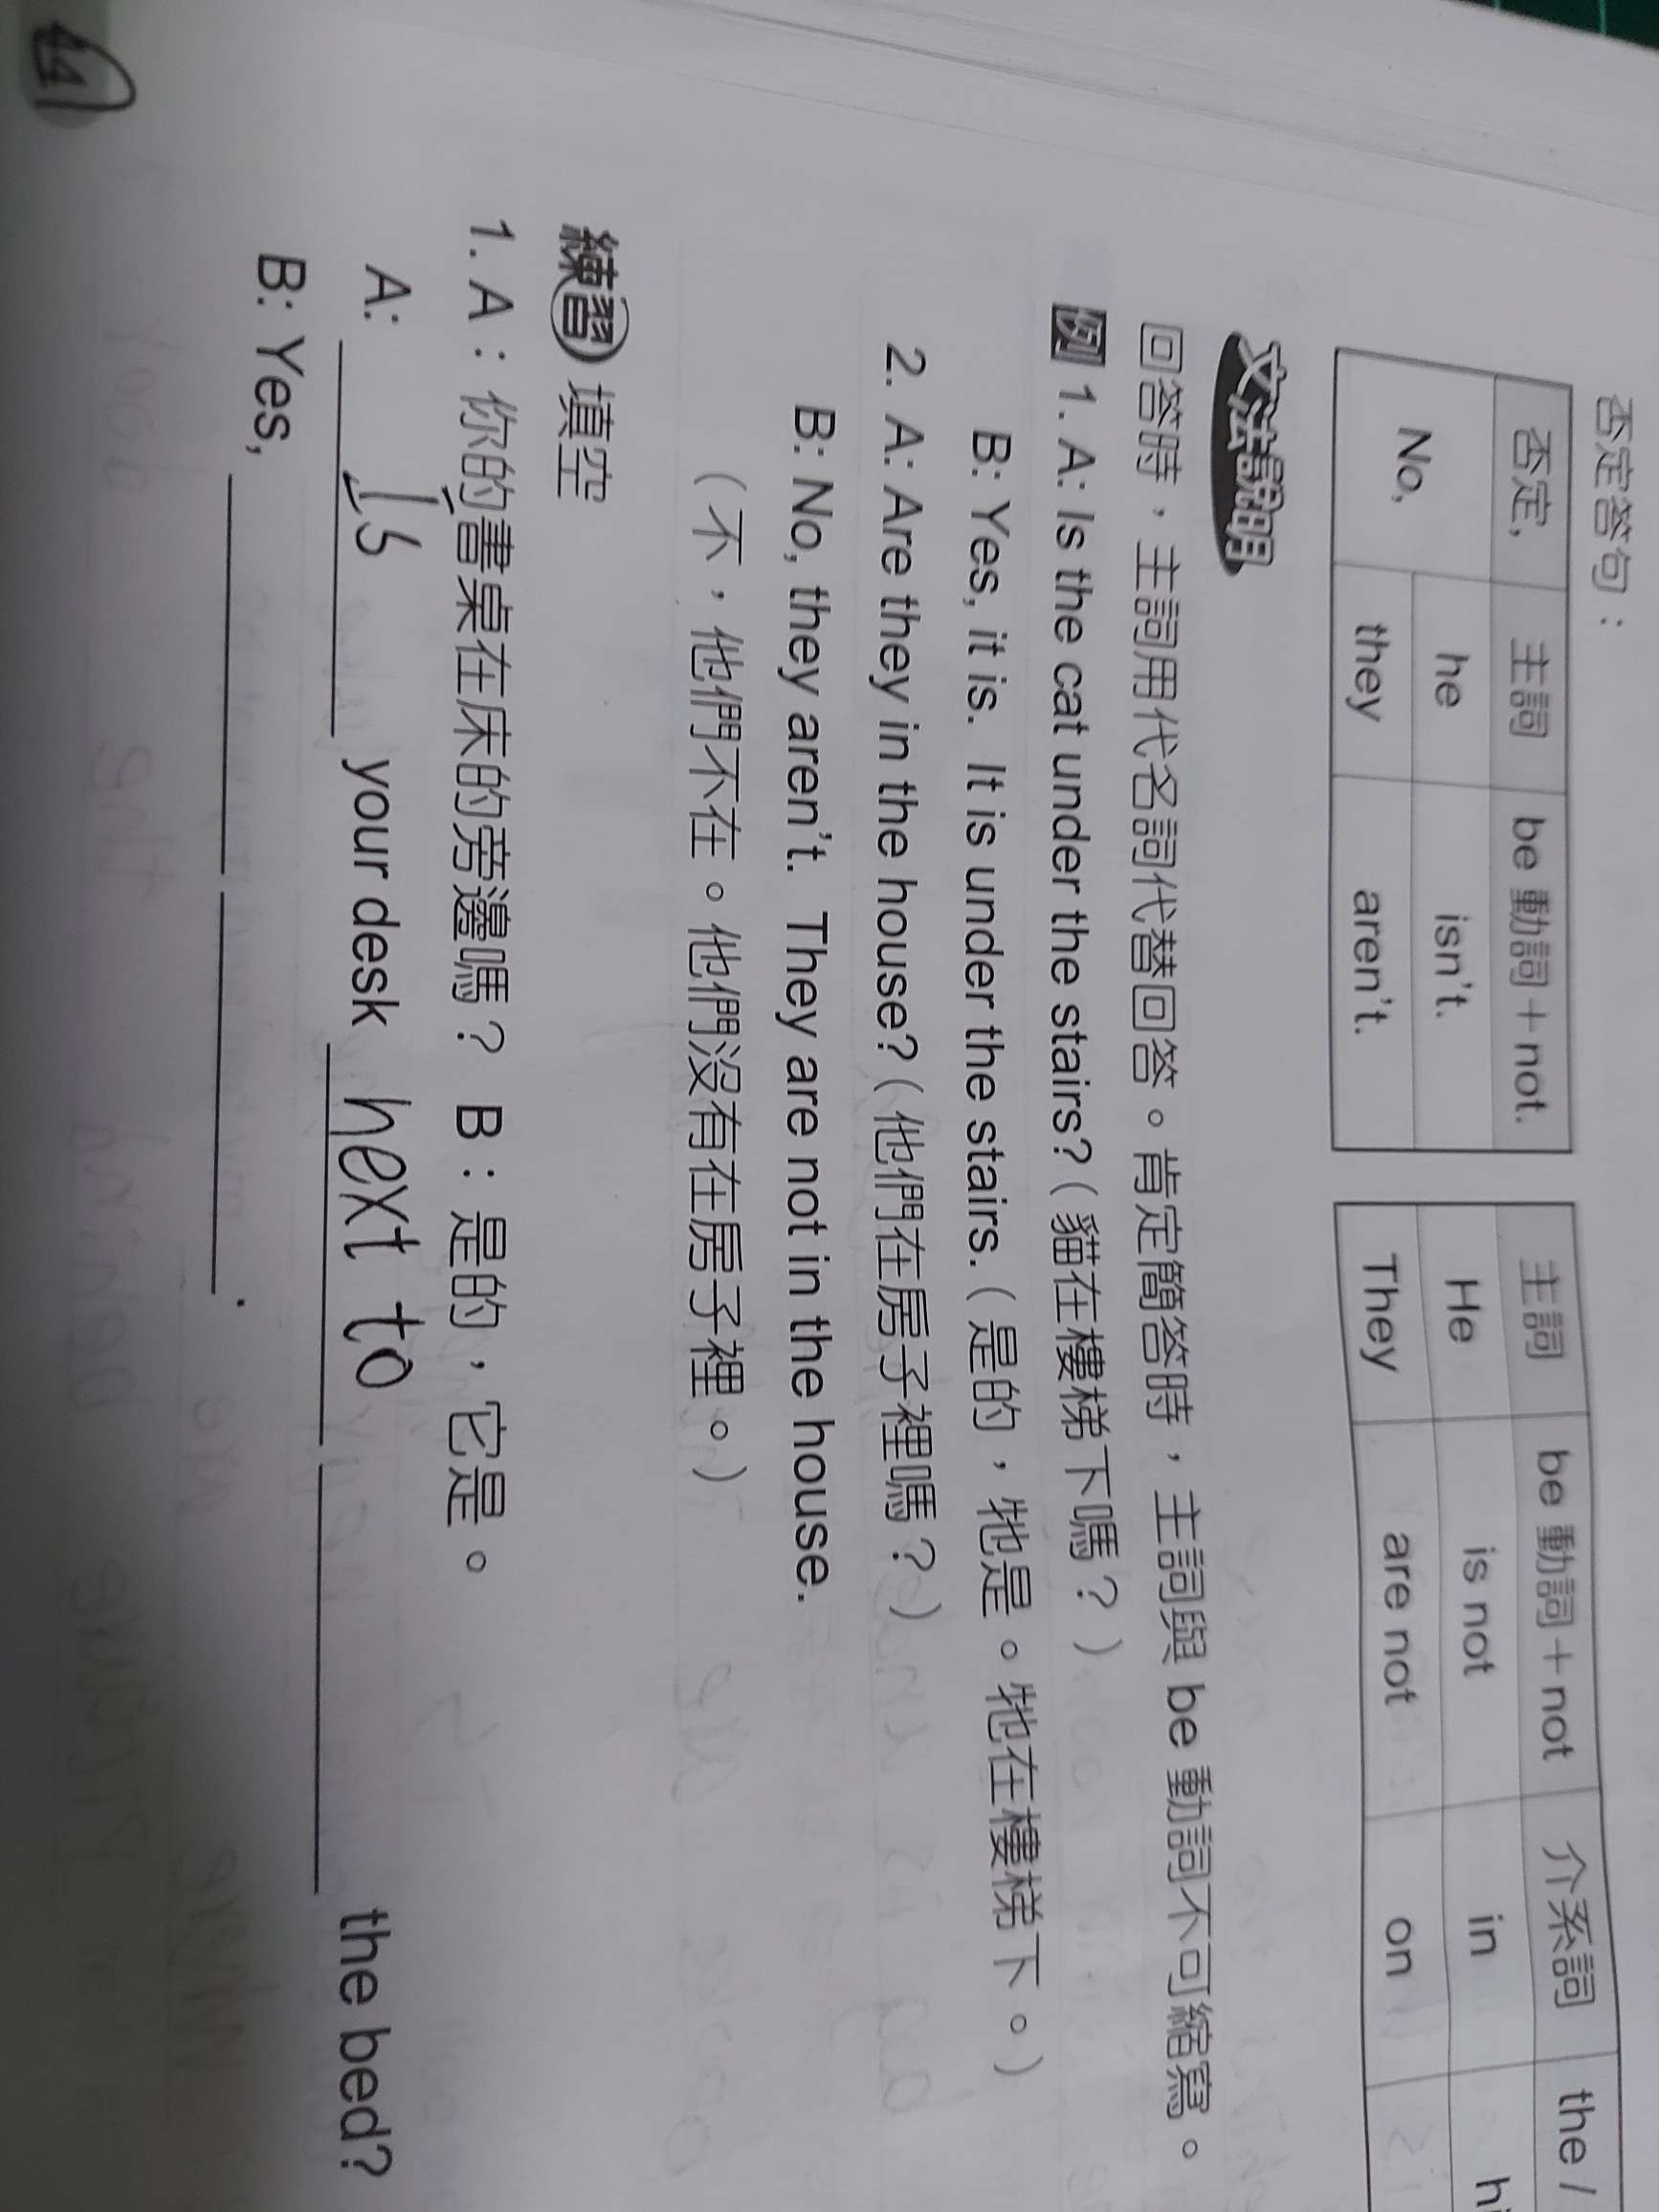 否定答句：
否定, 主詞 be 動詞＋not.
No, he isn't.
they aren't.
主詞 be 動詞＋not 介系詞 the /
He is not in hi
They are not on
文法說明
回答時，主詞用代名詞代替回答。肯定簡答時，主詞與 be 動詞不可縮寫。
例 1. A: Is the cat under the stairs?（貓在樓梯下嗎？）
B: Yes, it is. It is under the stairs.（是的，牠是。牠在樓梯下。）
2. A: Are they in the house?（他們在房子裡嗎？）
B: No, they aren't. They are not in the house.
（不，他們不在。他們沒有在房子裡。）
練習 填空
1. A：你的書桌在床的旁邊嗎？ B：是的，它是。
A: Is your desk next to ______ the bed?
B: Yes, ______ ______.
44